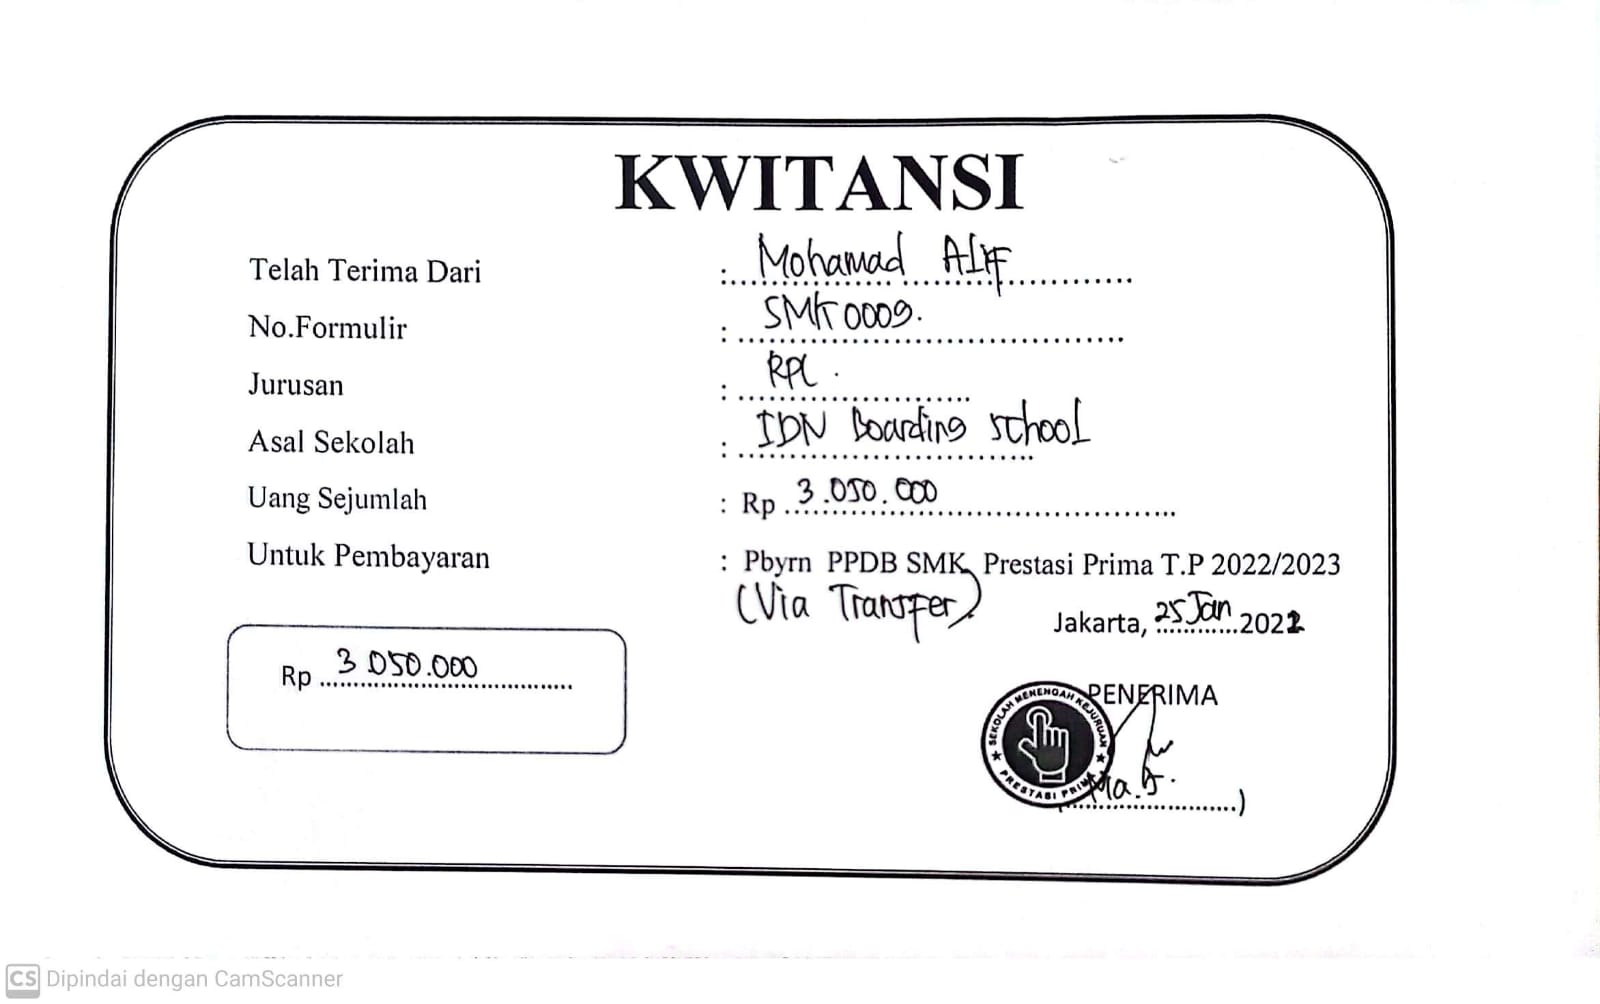 KWITANSI
Telah Terima Dari : Mohamad Alif
No.Formulir : SMK0009.
Jurusan : RPL.
Asal Sekolah : IDN Boarding School
Uang Sejumlah : Rp 3.050.000
Untuk Pembayaran : Pbyrn PPDB SMK Prestasi Prima T.P 2022/2023
(Via Transfer)
Jakarta, 25 Jan 2022
Rp 3.050.000
PENERIMA
SEKOLAH MENENGAH KEJURUAN
PRESTASI PRIMA
CS Dipindai dengan CamScanner